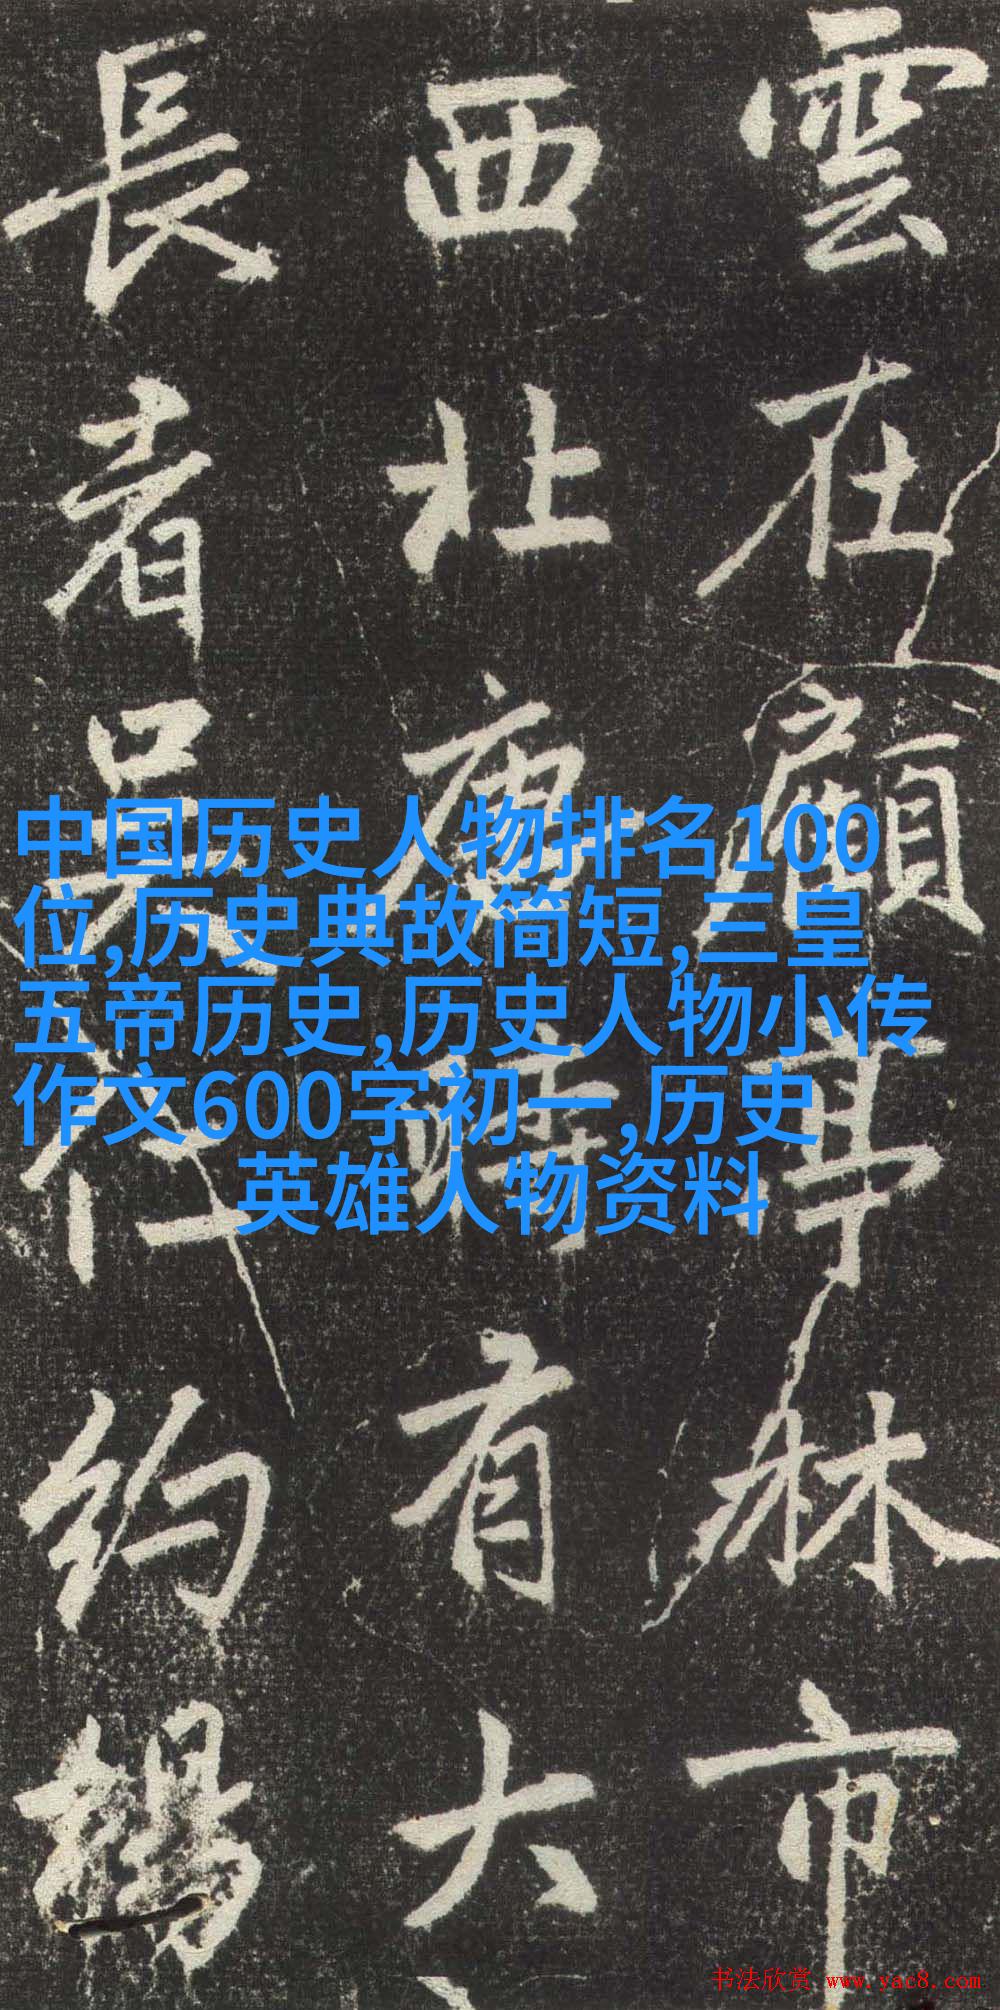 雲在顧亭林市
西北唐時有大
長者吳約
中国历史人物排名100
位,历史典故简短,三皇
五帝历史,历史人物小传
作文600字初一,历史
英雄人物资料
书法欣赏 www.yac8.com